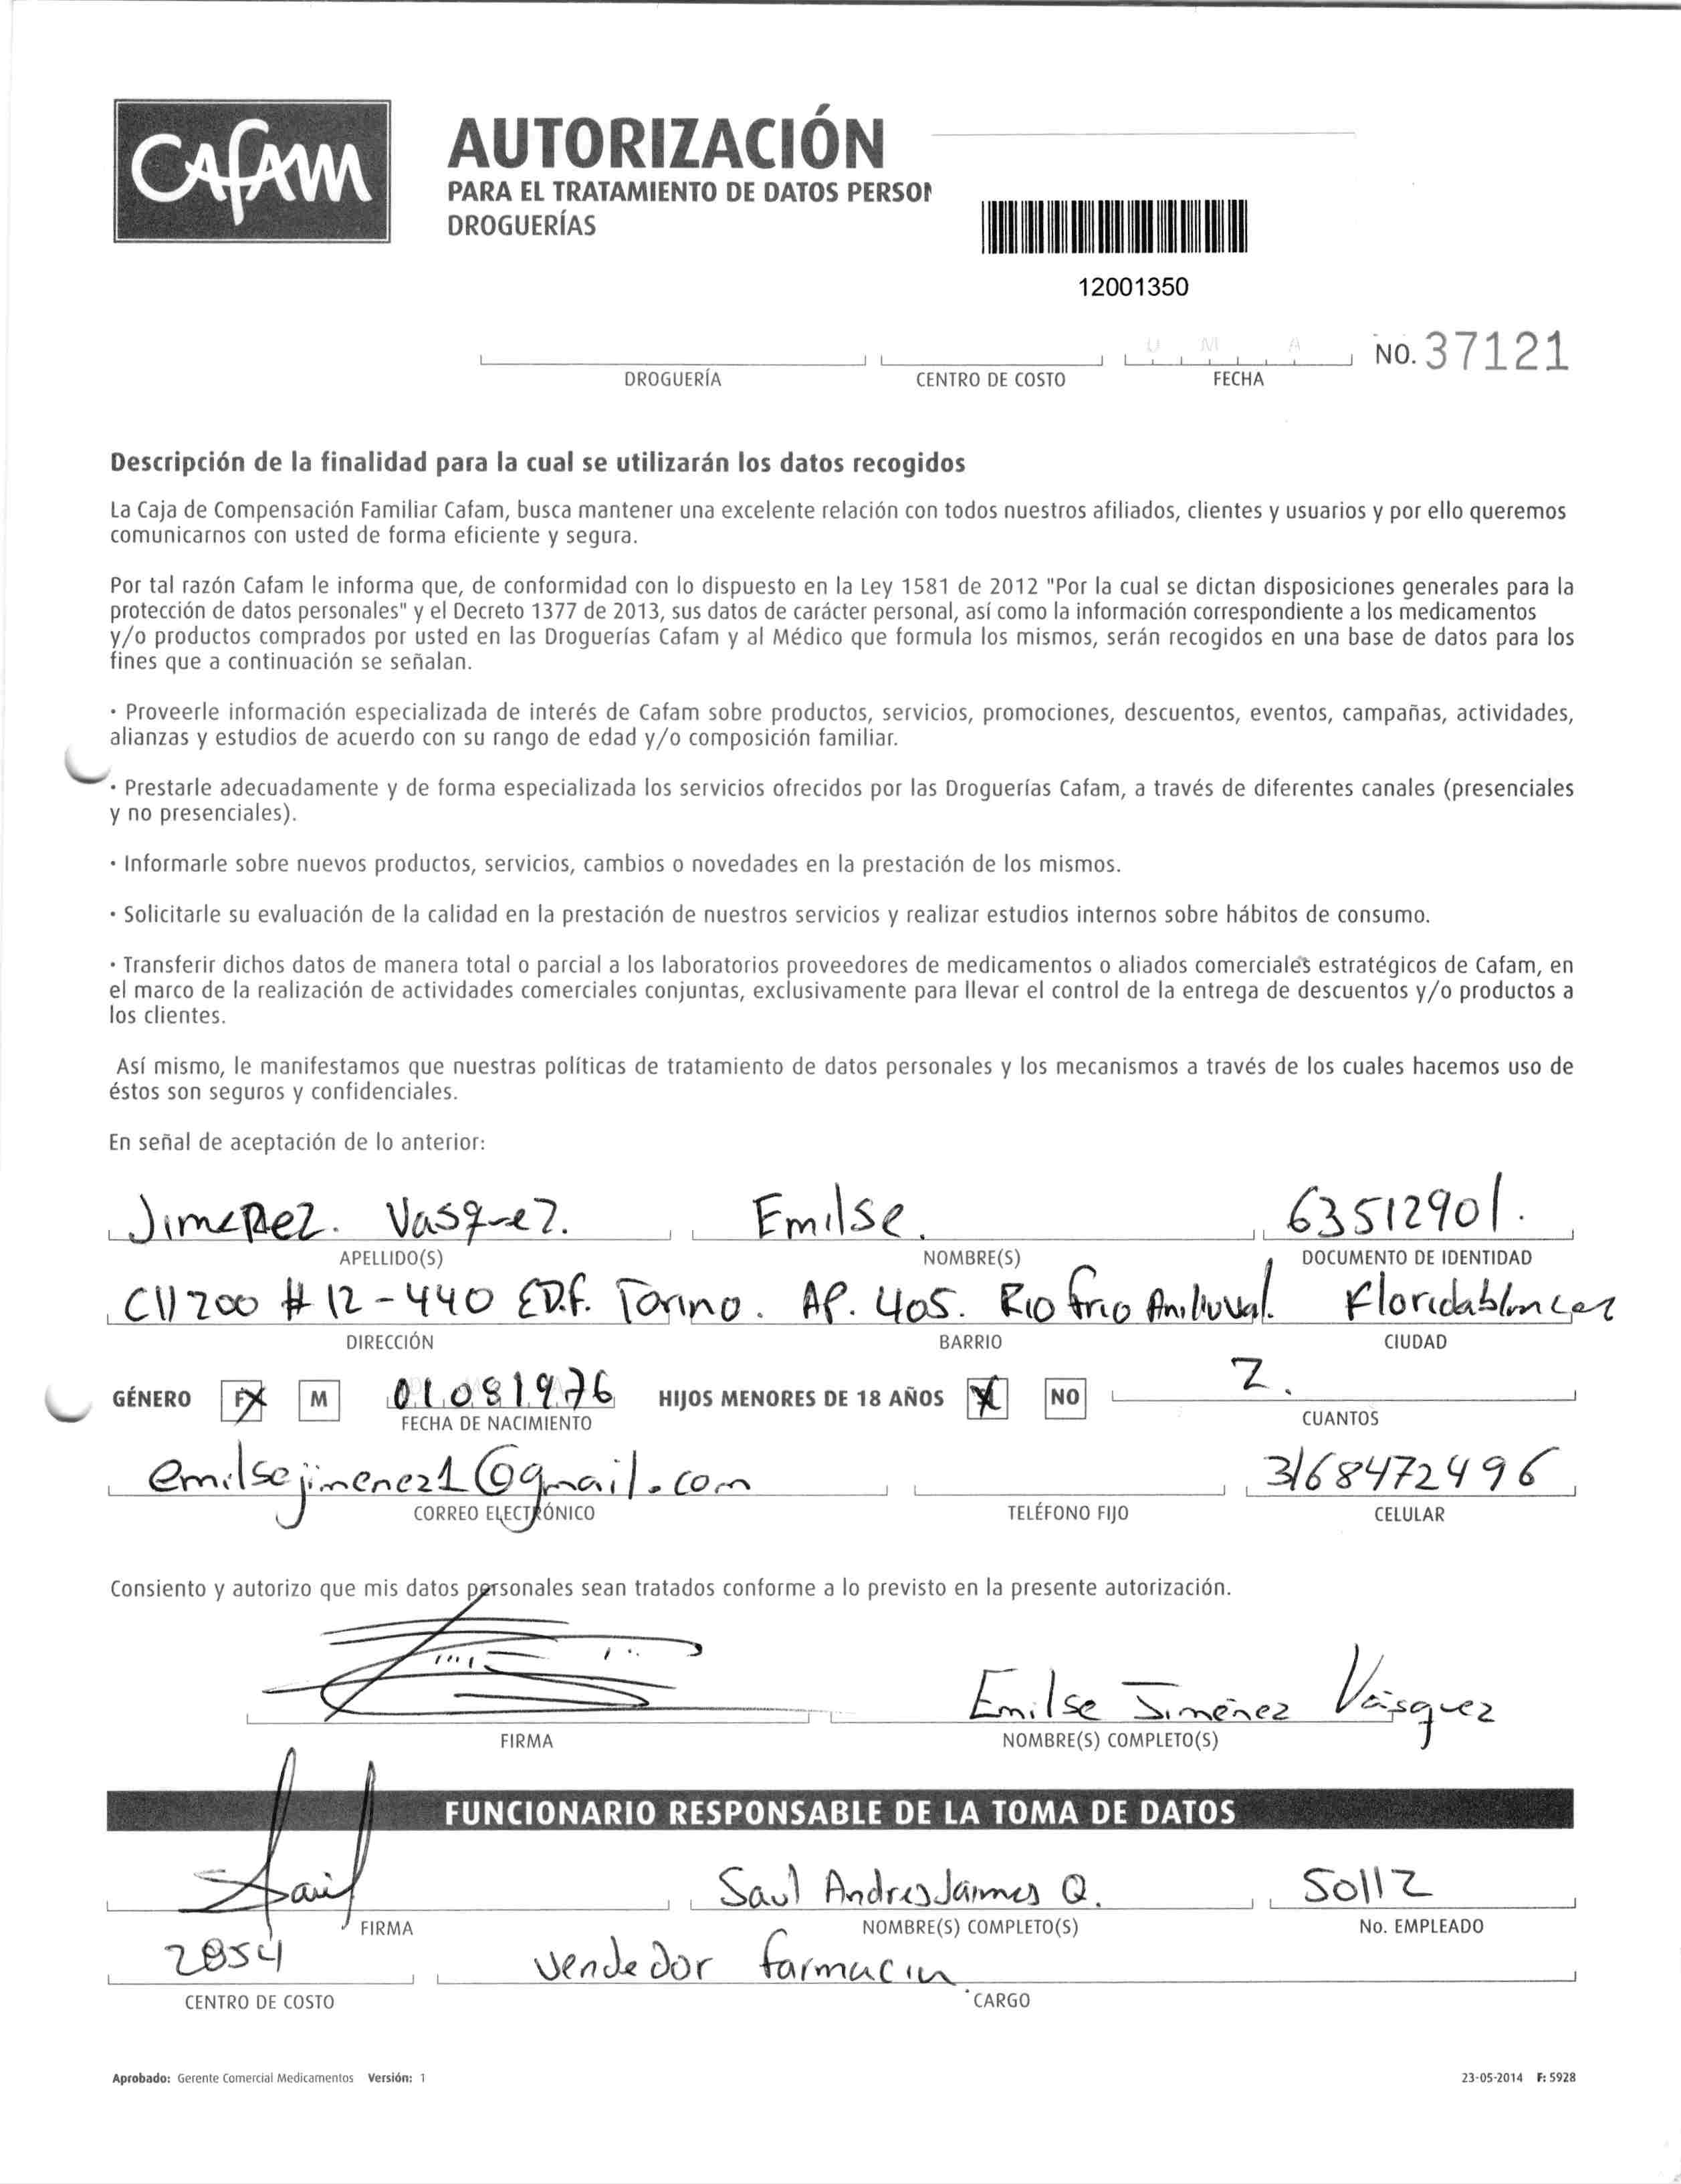 Cafam
AUTORIZACIÓN
PARA EL TRATAMIENTO DE DATOS PERSON
DROGUERÍAS
12001350
D M A
NO. 37121
DROGUERÍA CENTRO DE COSTO FECHA
Descripción de la finalidad para la cual se utilizarán los datos recogidos
La Caja de Compensación Familiar Cafam, busca mantener una excelente relación con todos nuestros afiliados, clientes y usuarios y por ello queremos
comunicarnos con usted de forma eficiente y segura.
Por tal razón Cafam le informa que, de conformidad con lo dispuesto en la Ley 1581 de 2012 "Por la cual se dictan disposiciones generales para la
protección de datos personales" y el Decreto 1377 de 2013, sus datos de carácter personal, así como la información correspondiente a los medicamentos
y/o productos comprados por usted en las Droguerías Cafam y al Médico que formula los mismos, serán recogidos en una base de datos para los
fines que a continuación se señalan.
· Proveerle información especializada de interés de Cafam sobre productos, servicios, promociones, descuentos, eventos, campañas, actividades,
alianzas y estudios de acuerdo con su rango de edad y/o composición familiar.
· Prestarle adecuadamente y de forma especializada los servicios ofrecidos por las Droguerías Cafam, a través de diferentes canales (presenciales
y no presenciales).
· Informarle sobre nuevos productos, servicios, cambios o novedades en la prestación de los mismos.
· Solicitarle su evaluación de la calidad en la prestación de nuestros servicios y realizar estudios internos sobre hábitos de consumo.
· Transferir dichos datos de manera total o parcial a los laboratorios proveedores de medicamentos o aliados comerciales estratégicos de Cafam, en
el marco de la realización de actividades comerciales conjuntas, exclusivamente para llevar el control de la entrega de descuentos y/o productos a
los clientes.
Así mismo, le manifestamos que nuestras políticas de tratamiento de datos personales y los mecanismos a través de los cuales hacemos uso de
éstos son seguros y confidenciales.
En señal de aceptación de lo anterior:
Jimenez. Vasquez. Emilse. 63512901.
APELLIDO(S) NOMBRE(S) DOCUMENTO DE IDENTIDAD
Cll 200 # 12-440 EDf. Torino. AP. 405. Rio frio Floridablanca
DIRECCIÓN BARRIO CIUDAD
GÉNERO F X M 01081976 HIJOS MENORES DE 18 AÑOS X NO 2.
FECHA DE NACIMIENTO CUANTOS
emilsejimenez1@gmail.com 3168472496
CORREO ELECTRÓNICO TELÉFONO FIJO CELULAR
Consiento y autorizo que mis datos personales sean tratados conforme a lo previsto en la presente autorización.
Emilse Jiménez Vásquez
FIRMA NOMBRE(S) COMPLETO(S)
FUNCIONARIO RESPONSABLE DE LA TOMA DE DATOS
Saul Andres Jaimes Q. 50112
FIRMA NOMBRE(S) COMPLETO(S) No. EMPLEADO
2854 vendedor farmacia
CENTRO DE COSTO CARGO
Aprobado: Gerente Comercial Medicamentos Versión: 1
23-05-2014 F: 5928